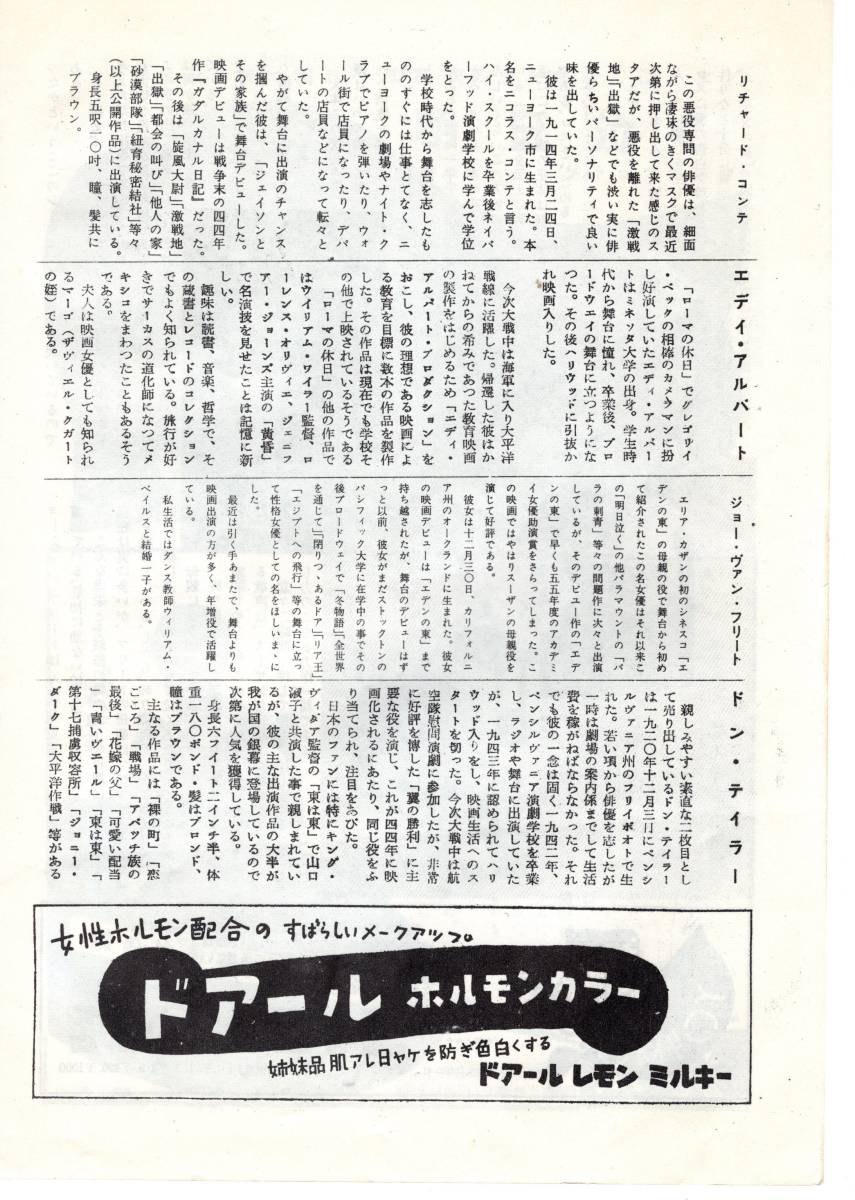 リチャード・コンテ
この悪役専門の俳優は、細面
ながら凄味のきくマスクで最近
次第に押し出して来た感じのス
タアだが、悪役を離れた「激戦
地」「出獄」などでも渋い実に俳
優らちいパーソナリティで良い
味を出していた。
彼は一九一四年三月二四日、
ニューヨーク市に生まれた。本
名をニコラス・コンテと言う。
ハイ・スクールを卒業後ネイバ
ーフッド演劇学校に学んで学位
をとった。
学校時代から舞台を志したも
ののすぐには仕事とてなく、ニ
ューヨークの劇場やナイト・ク
ラブでピアノを弾いたり、ウォ
ール街で店員になったり、デパ
ートの店員などになって転々と
していた。
やがて舞台に出演のチャンス
を掴んだ彼は、「ジェイソンと
その家族」で舞台デビューした。
映画デビューは戦争末の四四年
作『ガダルカナル日記』だった。
その後は「旋風大尉」「激戦地」
「出獄」「都会の叫び」「他人の家」
「砂漠部隊」「紐育秘密結社」等々
（以上公開作品）に出演している。
身長五呎一〇吋、瞳、髪共に
ブラウン。
エデイ・アルバート
「ローマの休日」でグレゴリイ
・ペックの相棒のカメラマンに扮
し好演していたエディ・アルバー
トはミネソタ大学の出身。学生時
代から舞台に憧れ、卒業後、ブロ
ードウエイの舞台に立つようにな
つた。その後ハリウッドに引抜か
れ映画入りした。
今次大戦中は海軍に入り太平洋
戦線に活躍した。帰還した彼はか
ねてからの希みであつた教育映画
の製作をはじめるため「エディ・
アルバート・プロダクション」を
おこし、彼の理想である映画によ
る教育を目標に数本の作品を製作
した。その作品は現在でも学校そ
の他で上映されているそうである
「ローマの休日」の他の作品で
はウイリアム・ワイラー監督、ロ
ーレンス・オリヴィエ、ジェニフ
アー・ジョーンズ主演の「黄昏」
で名演技を見せたことは記憶に新
しい。
趣味は読書、音楽、哲学で、そ
の蔵書とレコードのコレクション
でもよく知られている。旅行が好
きでサーカスの道化師になつてメ
キシコをまわつたこともあるそう
である。
夫人は映画女優としても知られ
るマーゴ（ザヴィエル・クガート
の姪）である。
ジョー・ヴァン・フリート
エリア・カザンの初のシネスコ「エ
デンの東」の母親の役で舞台から初め
て紹介されたこの名女優はそれ以来こ
の「明日泣く」の他パラマウントの「バ
ラの刺青」等々の問題作に次々と出演
しているが、そのデビュー作の「エデ
ンの東」で早くも五五年度のアカデミ
イ女優助演賞をさらってしまった。こ
の映画ではやはりスーザンの母親役を
演じて好評である。
彼女は十二月三〇日、カリフォルニ
ア州のオークランドに生まれた。彼女
の映画デビューは「エデンの東」まで
持ち越されたが、舞台のデビューはず
っと以前、彼女がまだストックトンの
パシフィック大学に在学中の事でその
後ブロードウェイで「冬物語」「全世界
を通じて」「閉りつゝあるドア」「リア王」
「エジプトへの飛行」等の舞台に立っ
て性格女優としての名をほしいまゝに
した。
最近は引く手あまたで、舞台よりも
映画出演の方が多く、年増役で活躍し
ている。
私生活ではダンス教師ウィリアム・
ベイルスと結婚一子がある。
ドン・テイラー
親しみやすい素直な二枚目とし
て売り出しているドン・テイラー
は一九二〇年十二月三日にペンシ
ルヴァニア州のフリイポオトで生
れた。若い頃から俳優を志したが
一時は劇場の案内係までして生活
費を稼がねばならなかった。それ
でも彼の一念は固く一九四二年、
ペンシルヴァニア演劇学校を卒業
し、ラジオや舞台に出演していた
が、一九四三年に認められてハリ
ウッド入りをし、映画生活へのス
タートを切った。今次大戦中は航
空隊慰問演劇に参加したが、非常
に好評を博した「翼の勝利」に主
要な役を演じ、これが四四年に映
画化されるにあたり、同じ役をふ
り当てられ、注目をあびた。
日本のファンには特にキング・
ヴィダア監督の「東は東」で山口
淑子と共演した事で親しまれてい
るが、彼の主な出演作品の大半が
我が国の銀幕に登場しているので
次第に人気を獲得している。
身長六フイート二インチ半、体
重一八〇ポンド・髪はブロンド、
瞳はブラウンである。
主なる作品には「裸の町」「恋
ごころ」「戦場」「アパッチ族の
最後」「花嫁の父」「可愛い配当
」「青いヴエール」「東は東」「
第十七捕虜収容所」「ジョニー・
ダーク」「太平洋作戦」等がある
女性ホルモン配合の すばらしいメークアップ
ドアール ホルモンカラー
姉妹品 肌アレ日ヤケを防ぎ色白くする
ドアール レモン ミルキー